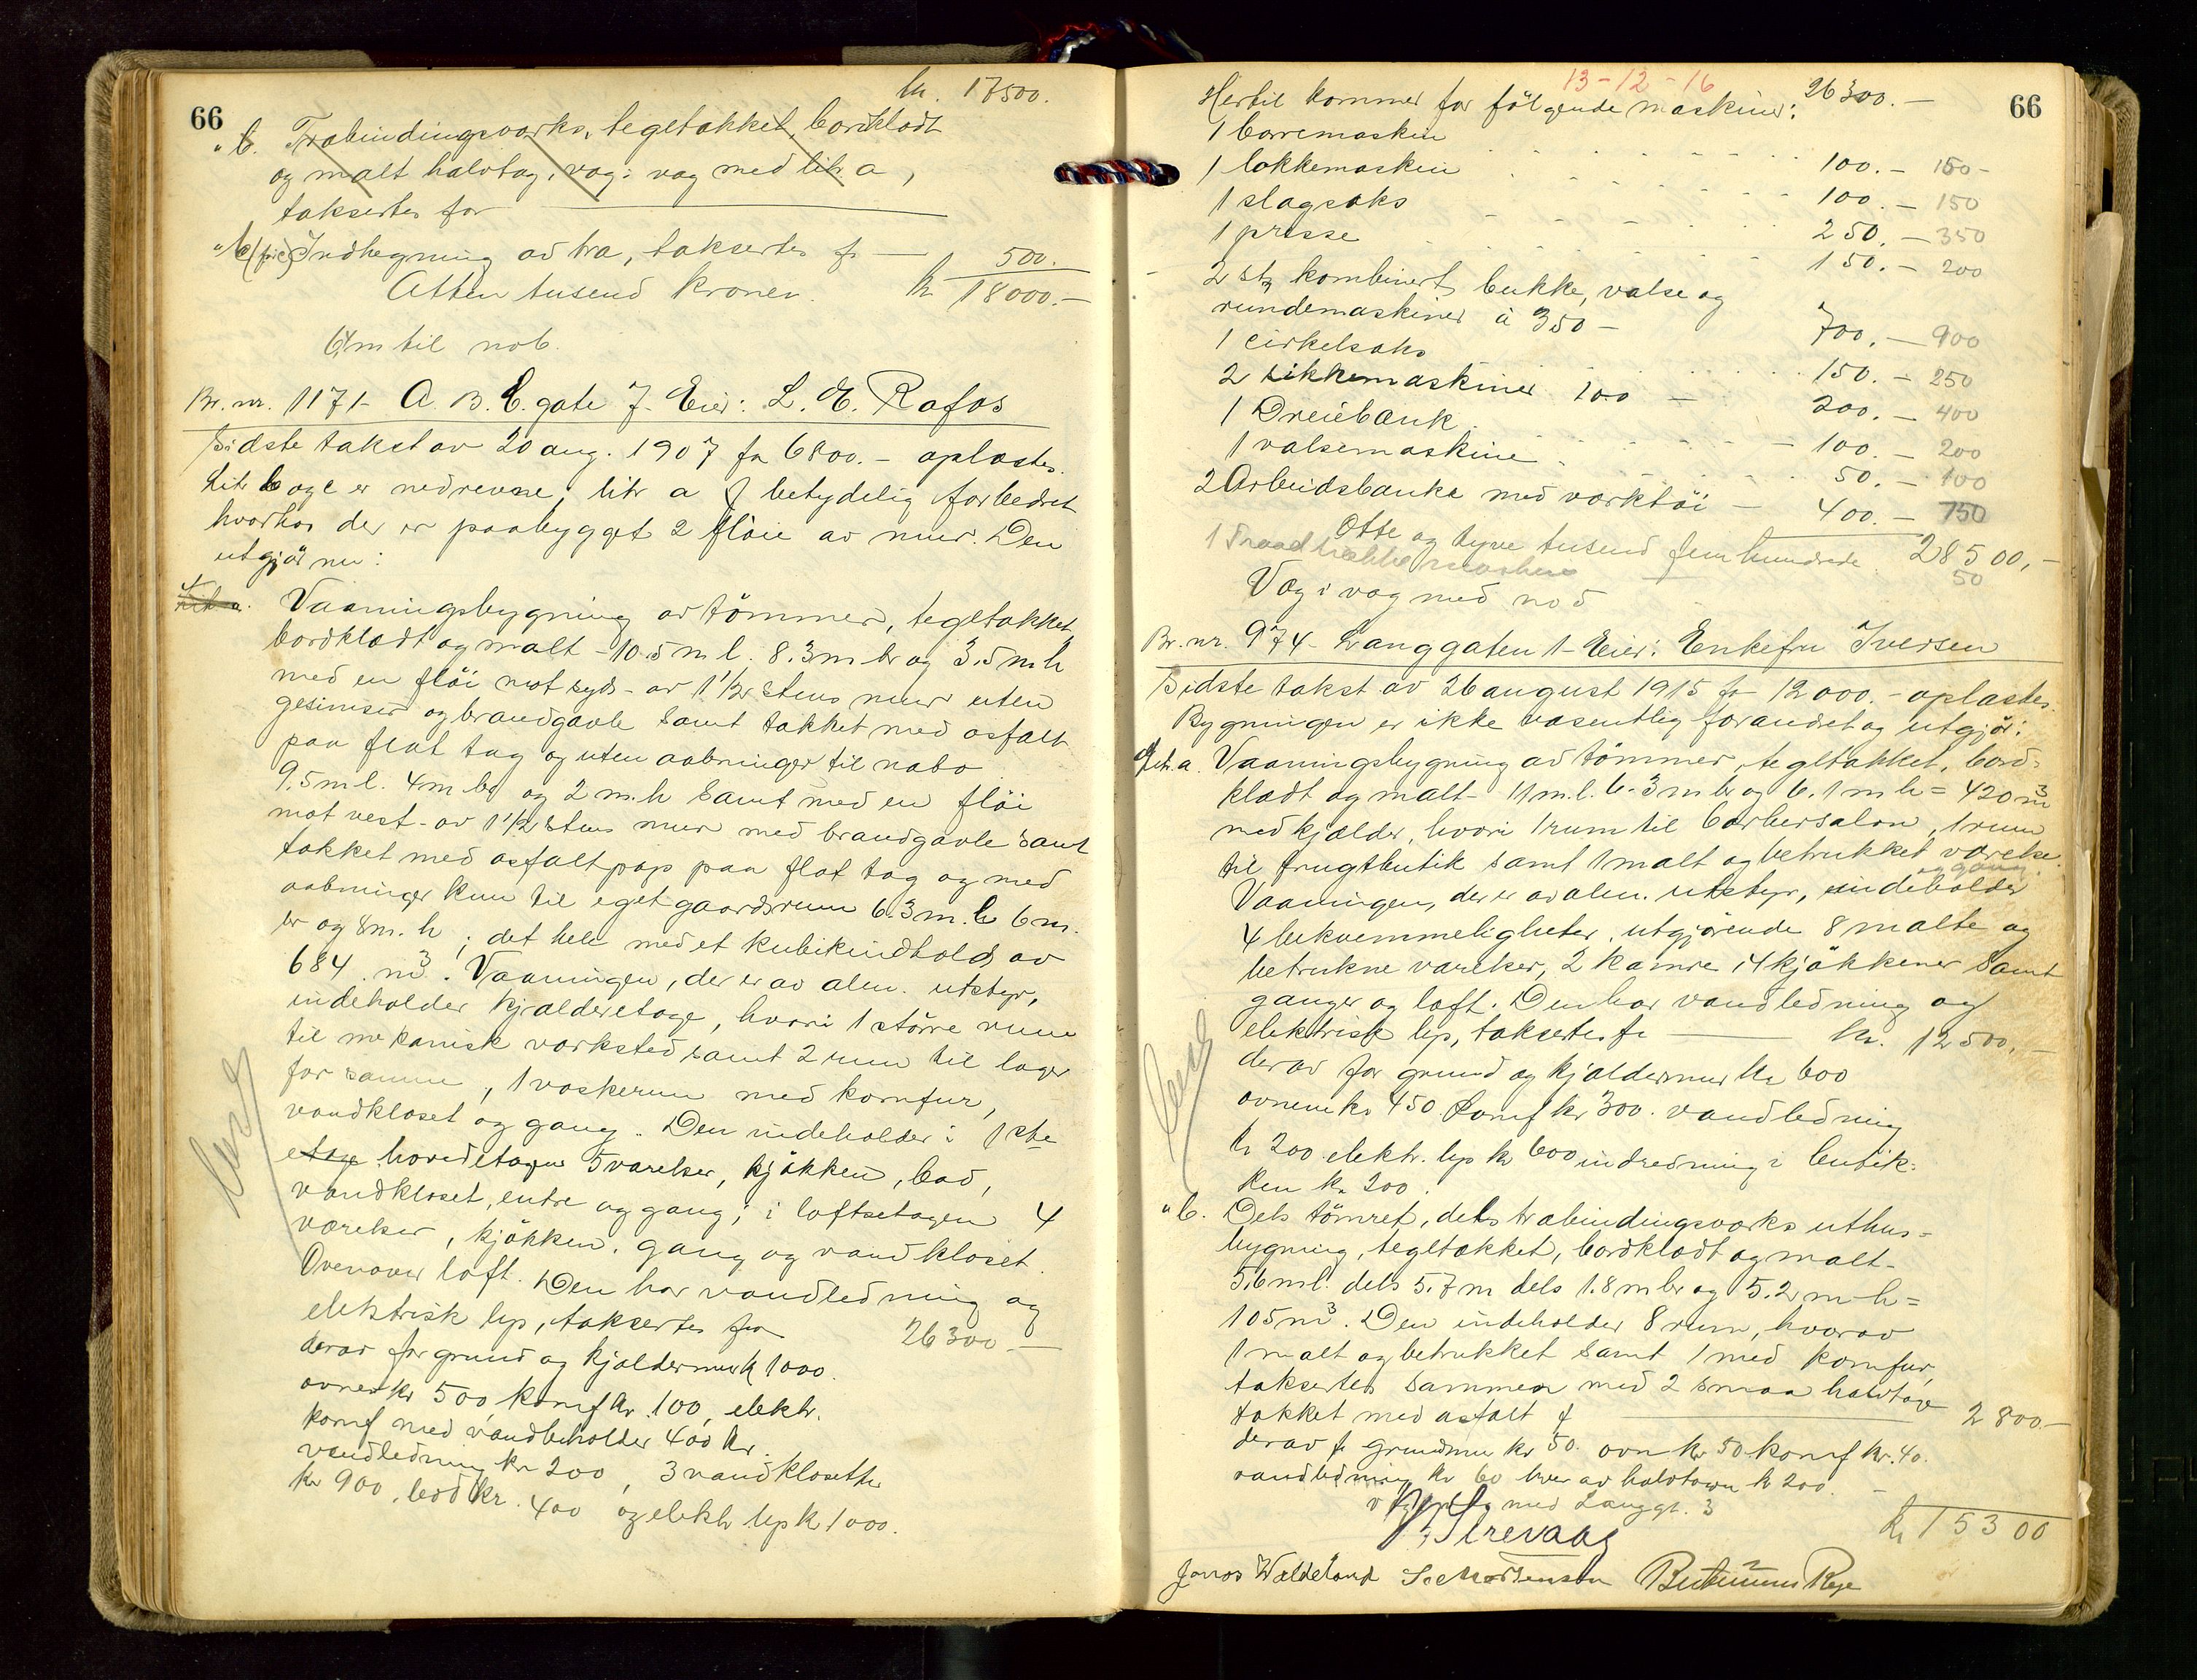 66
kr. 17500.
" b. Træbindingsværks, tegltækket, bordklædt
og malt halvtag, væg i væg med litr. a,
taksertes for
" b (sic) Indhegning av træ, taksertes fr — 500.
Atten tusend kroner. kr 18000.-
6,4 m til nab.
Br. nr. 1171 - A. B. C. gate 7. Eier: L. E. Rafos
Sidste takst av 20 aug. 1907 fr 6800.- oplæstes.
Litr b og c er nedrevne; litr a f betydelig forbedret
hvorhos der er paabygget 2 fløie av mur. Den
utgjør nu:
Litr a. Vaaningsbygning av tømmer, tegltækket,
bordklædt og malt - 10.5 m l. 8.3 m br og 3.5 m h
med en fløi mot syd - av 1 1/2 stens mur uten
gesimser og brandgavle samt tækket med asfalt
paa flat tag og uten aabninger til nabo
9.5 m l. 4 m br og 2 m. h samt med en fløi
mot vest - av 1 1/2 stens mur med brandgavle samt
tækket med asfaltpap paa flat tag og med
aabninger kun til eget gaardsrum 6.3 m. l 6 m.
br og 8 m. h; det hele med et kubikindhold av
684 m³. Vaaningen, der er av alm. utstyr,
indeholder kjælderetage, hvori 1 større rum
til mekanisk værksted samt 2 rum til lager
for samme, 1 vaskerum med komfur,
vandkloset og gang. Den indeholder i 1ste
etage hovedetagen 5 værelser, kjøkken, bad,
vandkloset, entre og gang; i loftsetagen 4
værelser, kjøkken, gang og vandkloset.
Ovenover loft. Den har vandledning og
elektrisk lys, taksertes for 26300.-
derav for grund og kjældermur kr 1000.
ovner kr 500, komf kr. 100, elektr.
komf med vandbeholder 400 kr.
vandledning kr 200, 3 vandklosetter
kr 900, bad kr. 400 og elektr lys kr 1000.
66
13-12-16
Hertil kommer for følgende maskiner: 26300.-
1 borremaskin 100.- 150-
1 lokkemaskin 100.- 150
1 slagsaks 250.- 350
1 presse 150.- 200
2 stk kombinert bukke, valse og
rundemaskiner à 350 - 700.- 900
1 cirkelsaks 150.- 250
2 sikkemaskiner 100 - 200.- 400
1 Dreiebænk 100.- 200
1 valsemaskine 50.- 100
2 Arbeidsbænke med værktøi - 400.- 750
Otte og tyve tusend femhundrede 28500,-
1 Traad 50
Væg i væg med no 5
Br. nr. 974 - Langgaten 1 - Eier: Enkefru Iversen
Sidste takst av 26 august 1915 fr 12000.- oplæstes.
Bygningen er ikke væsentlig forandret og utgjør:
Litr. a. Vaaningsbygning av tømmer, tegltækket, bord-
klædt og malt - 11 m. l. 6.3 m br og 6.1 m h = 420 m³
med kjælder, hvori 1 rum til barbersalon, 1 rum
til frugtbutik samt 1 malt og betrukket værelse
og gang.
Vaaningen, der er av alm. utstyr, indeholder
4 bekvemmeligheter, utgjørende 8 malte og
betrukne værelser, 2 kamre i 4 kjøkkener samt
ganger og loft. Den har vandledning og
elektrisk lys, taksertes fr kr. 12500,-
derav for grund og kjældermur kr 600
ovnene kr 450. komf kr 300. vandledning
kr 200. elektr. lys kr 600 indredning i butik-
ken kr 200.
" b. Dels tømret, dels træbindingsværks uthus-
bygning, tegltækket, bordklædt og malt -
5.6 m l. dels 5.7 m dels 1.8 m br og 5.2 m h =
105 m³. Den indeholder 8 rum, hvorav
1 malt og betrukket samt 1 med komfur,
taksertes sammen med 2 smaa halvtage
tækket med asfalt f 2800.-
derav fr grundmur kr 50. ovn kr 50 komf kr. 40.
vandledning kr 60 hver av halvtagene kr 200.
med Langgt. 3
kr 15300
Strevaag
Jonas Waldeland